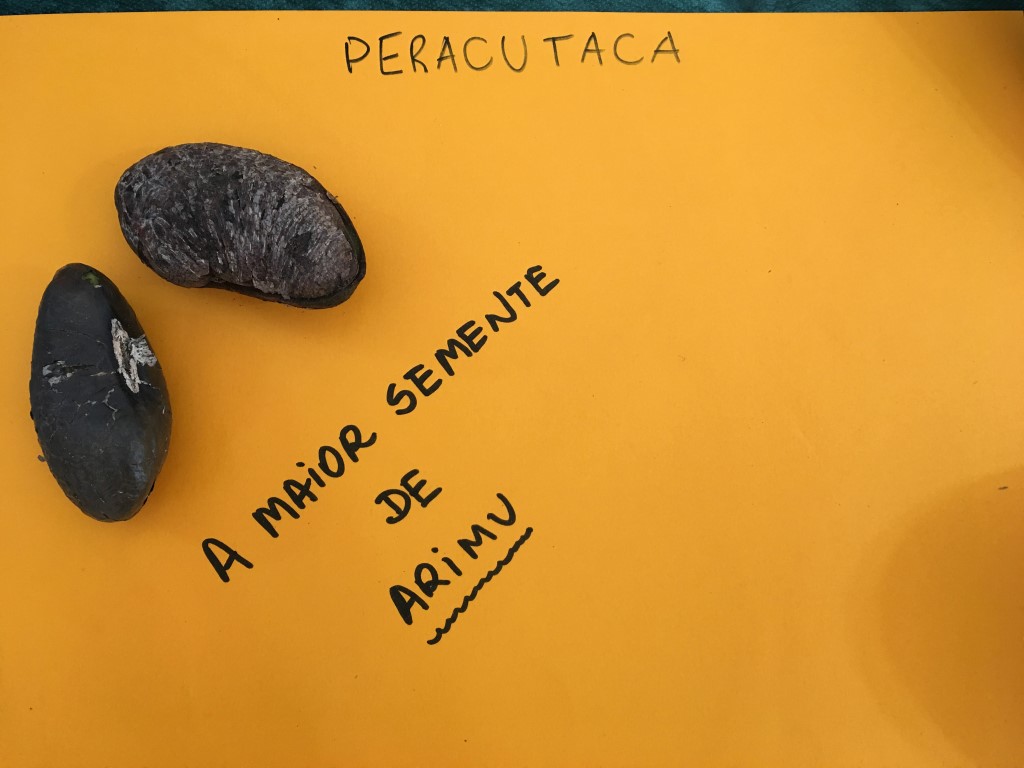 PERACUTACA
A MAIOR SEMENTE
DE
ARIMU